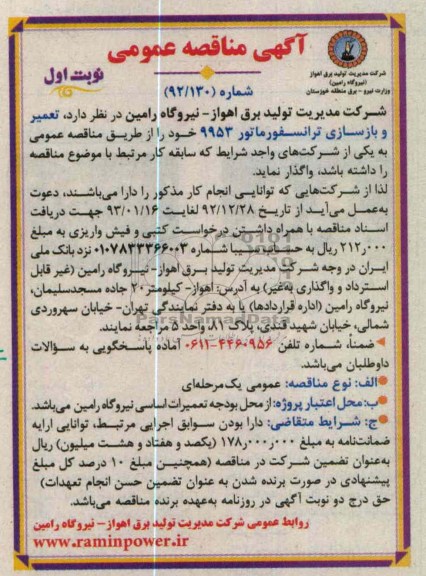 آگهی مناقصه عمومی
شرکت مدیریت تولید برق اهواز
(نیروگاه رامین)
وزارت نیرو - برق منطقه خوزستان
نوبت اول
شماره (۹۲/۱۳۰)
شرکت مدیریت تولید برق اهواز- نیروگاه رامین در نظر دارد، تعمیر
و بازسازی ترانسفورماتور ۹۹۵۳ خود را از طریق مناقصه عمومی
به یکی از شرکت‌های واجد شرایط که سابقه کار مرتبط با موضوع مناقصه
را داشته باشد، واگذار نماید.
لذا از شرکت‌هایی که توانایی انجام کار مذکور را دارا می‌باشند، دعوت
به‌عمل می‌آید از تاریخ ۹۲/۱۲/۲۸ لغایت ۹۳/۰۱/۱۶ جهت دریافت
اسناد مناقصه با همراه داشتن درخواست کتبی و فیش واریزی به مبلغ
۲۱۲٫۰۰۰ ریال به حساب سیبا شماره ۰۱۰۷۸۳۳۳۶۶۰۰۳ نزد بانک ملی
ایران در وجه شرکت مدیریت تولید برق اهواز- نیروگاه رامین (غیر قابل
استرداد و واگذاری به‌غیر) به آدرس: اهواز- کیلومتر ۲۰ جاده مسجدسلیمان،
نیروگاه رامین (اداره قراردادها) یا به دفتر نمایندگی تهران- خیابان سهروردی
شمالی، خیابان شهید قندی، پلاک ۸۱، واحد ۵ مراجعه نمایند.
ضمناً، شماره تلفن ۴۴۶۰۹۵۶-۰۶۱۱ آماده پاسخگویی به سؤالات
داوطلبان می‌باشد.
الف: نوع مناقصه: عمومی یک مرحله‌ای
ب: محل اعتبار پروژه: از محل بودجه تعمیرات اساسی نیروگاه رامین می‌باشد.
ج: شرایط متقاضی: دارا بودن سوابق اجرایی مرتبط، توانایی ارایه
ضمانت‌نامه به مبلغ ۱۷۸٫۰۰۰٫۰۰۰ (یکصد و هفتاد و هشت میلیون) ریال
به‌عنوان تضمین شرکت در مناقصه (همچنین مبلغ ۱۰ درصد کل مبلغ
پیشنهادی در صورت برنده شدن به عنوان تضمین حسن انجام تعهدات)
حق درج دو نوبت آگهی در روزنامه به‌عهده برنده مناقصه می‌باشد.
روابط عمومی شرکت مدیریت تولید برق اهواز- نیروگاه رامین
www.raminpower.ir